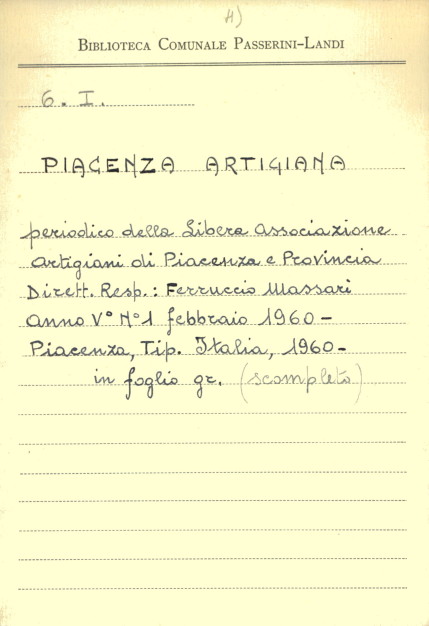 A)
BIBLIOTECA COMUNALE PASSERINI-LANDI
6. I.
PIACENZA ARTIGIANA
periodico della Libera Associazione
Artigiani di Piacenza e Provincia
Dirett. Resp.: Ferruccio Massari
Anno V° N°1 febbraio 1960-
Piacenza, Tip. Italia, 1960-
in foglio gr. (scompleto)